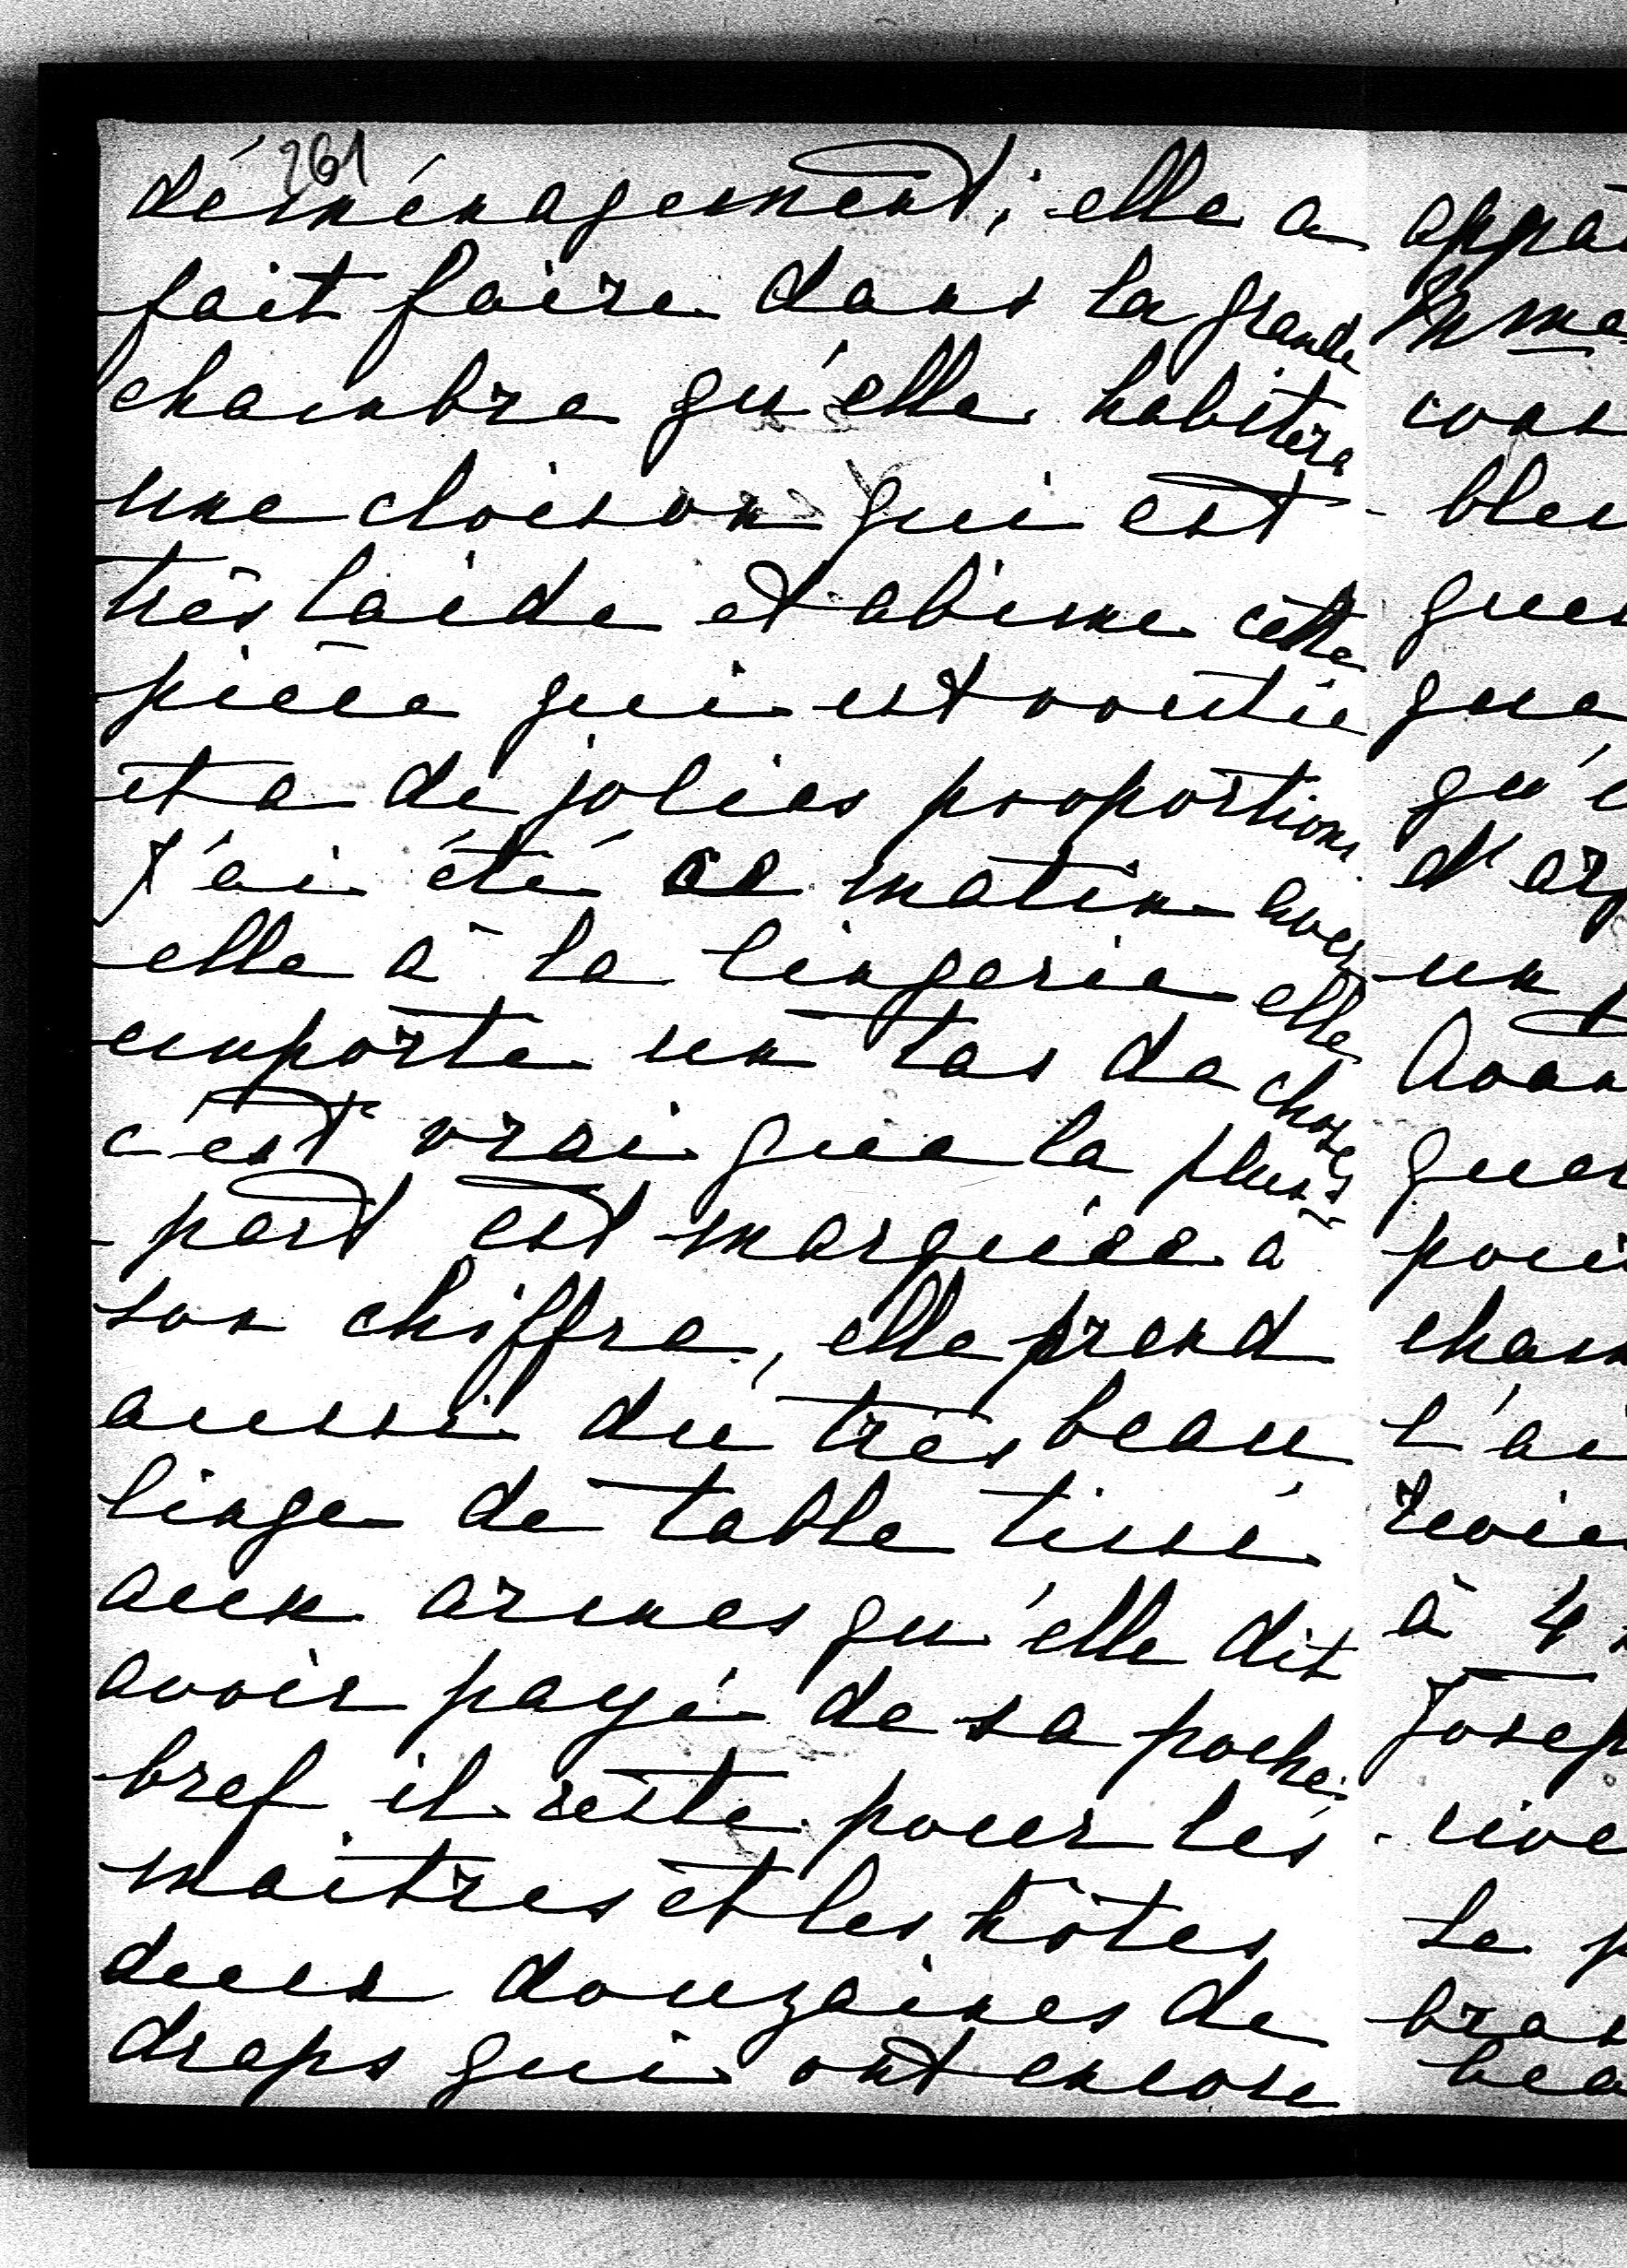 261
déménagement; elle a
fait faire dans la grande
chambre qu'elle habitera
une cloison qui est
très laide et abime cette
pièce qui est voutée
et a de jolies proportions
J'ai été ce matin avec
elle à la lingerie elle
emporte un tas de choses
c'est vrai que la plus-
part est marquée à
son chiffre, elle prend
aussi du très beau
linge de table tissé
aux armes qu'elle dit
avoir payé de sa poche;
bref il reste pour les
maitres et les hôtes
deux douzaines de
draps qui ont encore
appa
Mme
cons
bleu
que
qu'e
d'arg
un
Avan
quer
pour
cham
l'ai
revie
à 4
Josep
rive
le p
bras
bea